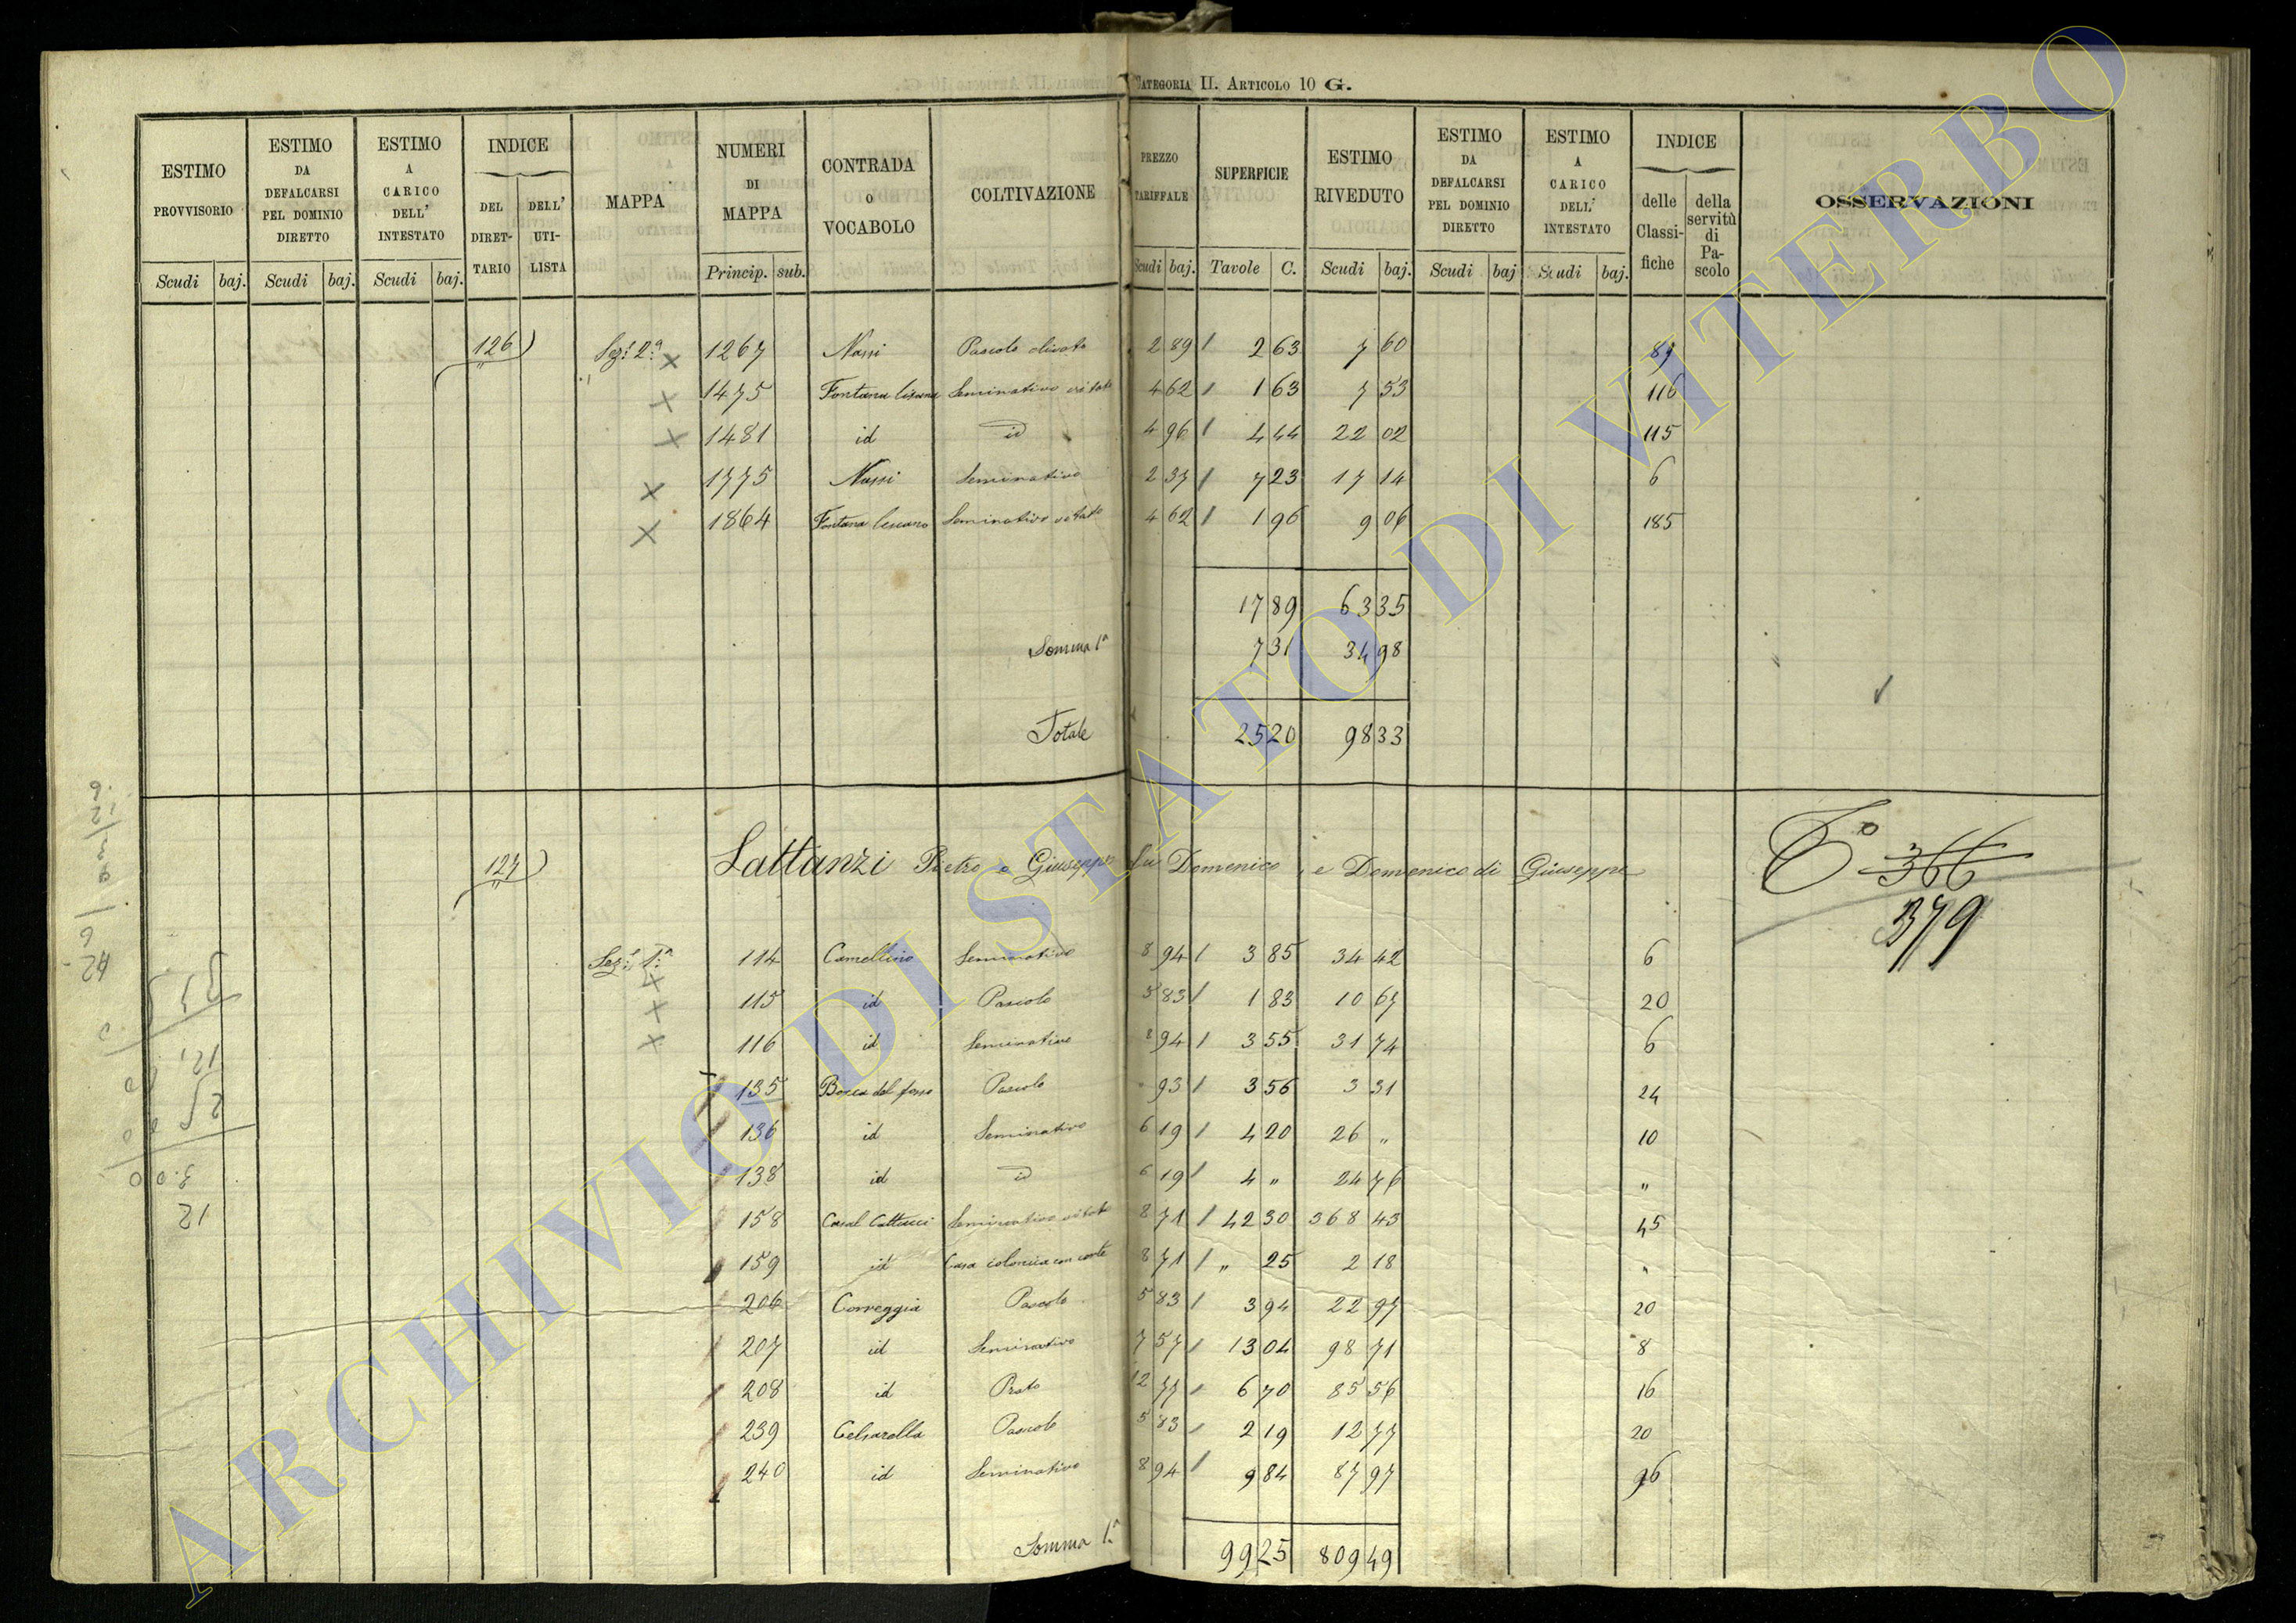 CATEGORIA II. ARTICOLO 10 G.
ESTIMO PROVVISORIO | ESTIMO DA DEFALCARSI PEL DOMINIO DIRETTO | ESTIMO A CARICO DELL' INTESTATO | INDICE DEL DIRETTARIO | DELL' UTILISTA | MAPPA | NUMERI DI MAPPA | CONTRADA O VOCABOLO | COLTIVAZIONE | PREZZO TARIFFALE | SUPERFICIE | ESTIMO RIVEDUTO | ESTIMO DA DEFALCARSI PEL DOMINIO DIRETTO | ESTIMO A CARICO DELL' INTESTATO | INDICE delle Classifiche | della servitù di Pascolo | OSSERVAZIONI
Scudi baj. | Scudi baj. | Scudi baj. | Princip. sub. | Scudi baj. | Tavole C. | Scudi baj. | Scudi baj | Scudi baj.
126) Sez. 2ª x 1267 Nassi Pascolo olivato 2 89 / 2 63 7 60 89
x 1475 Fontana Seminativo vitato 4 62 / 1 63 7 53 116
x 1481 id id 4 96 / 4 44 22 02 115
x 1775 Nassi Seminativo 2 37 / 7 23 17 14 6
x 1864 Fontana Seminativo vitato 4 62 / 1 96 9 06 185
17 89 63 35
Somma 1ª 7 31 34 98
Totale 25 20 98 33
127) Lattanzi Pietro e Giuseppe fu Domenico, e Domenico di Giuseppe
Tº 366
379
Sez. 1ª x 114 Camellino Seminativo 8 94 / 3 85 34 42 6
x 115 id Pascolo 5 83 / 1 83 10 67 20
x 116 id Seminativo 8 94 / 3 55 31 74 6
135 Bocca del fosso Pascolo 93 / 3 56 3 31 24
136 id Seminativo 6 19 / 4 20 26 " 10
138 id id 6 19 / 4 " 24 76 "
158 Casal Cattucci Seminativo vitato 8 71 / 42 30 368 43 45
159 id Casa colonica con corte 8 71 / " 25 2 18 "
206 Correggia Pascolo 5 83 / 3 94 22 97 20
207 id Seminativo 7 57 / 13 04 98 71 8
208 id Prato 12 77 / 6 70 85 56 16
239 Celsarella Pascolo 5 83 / 2 19 12 77 20
240 id Seminativo 8 94 / 9 84 87 97 96
Somma 1ª 99 25 809 49
ARCHIVIO DI STATO DI VITERBO